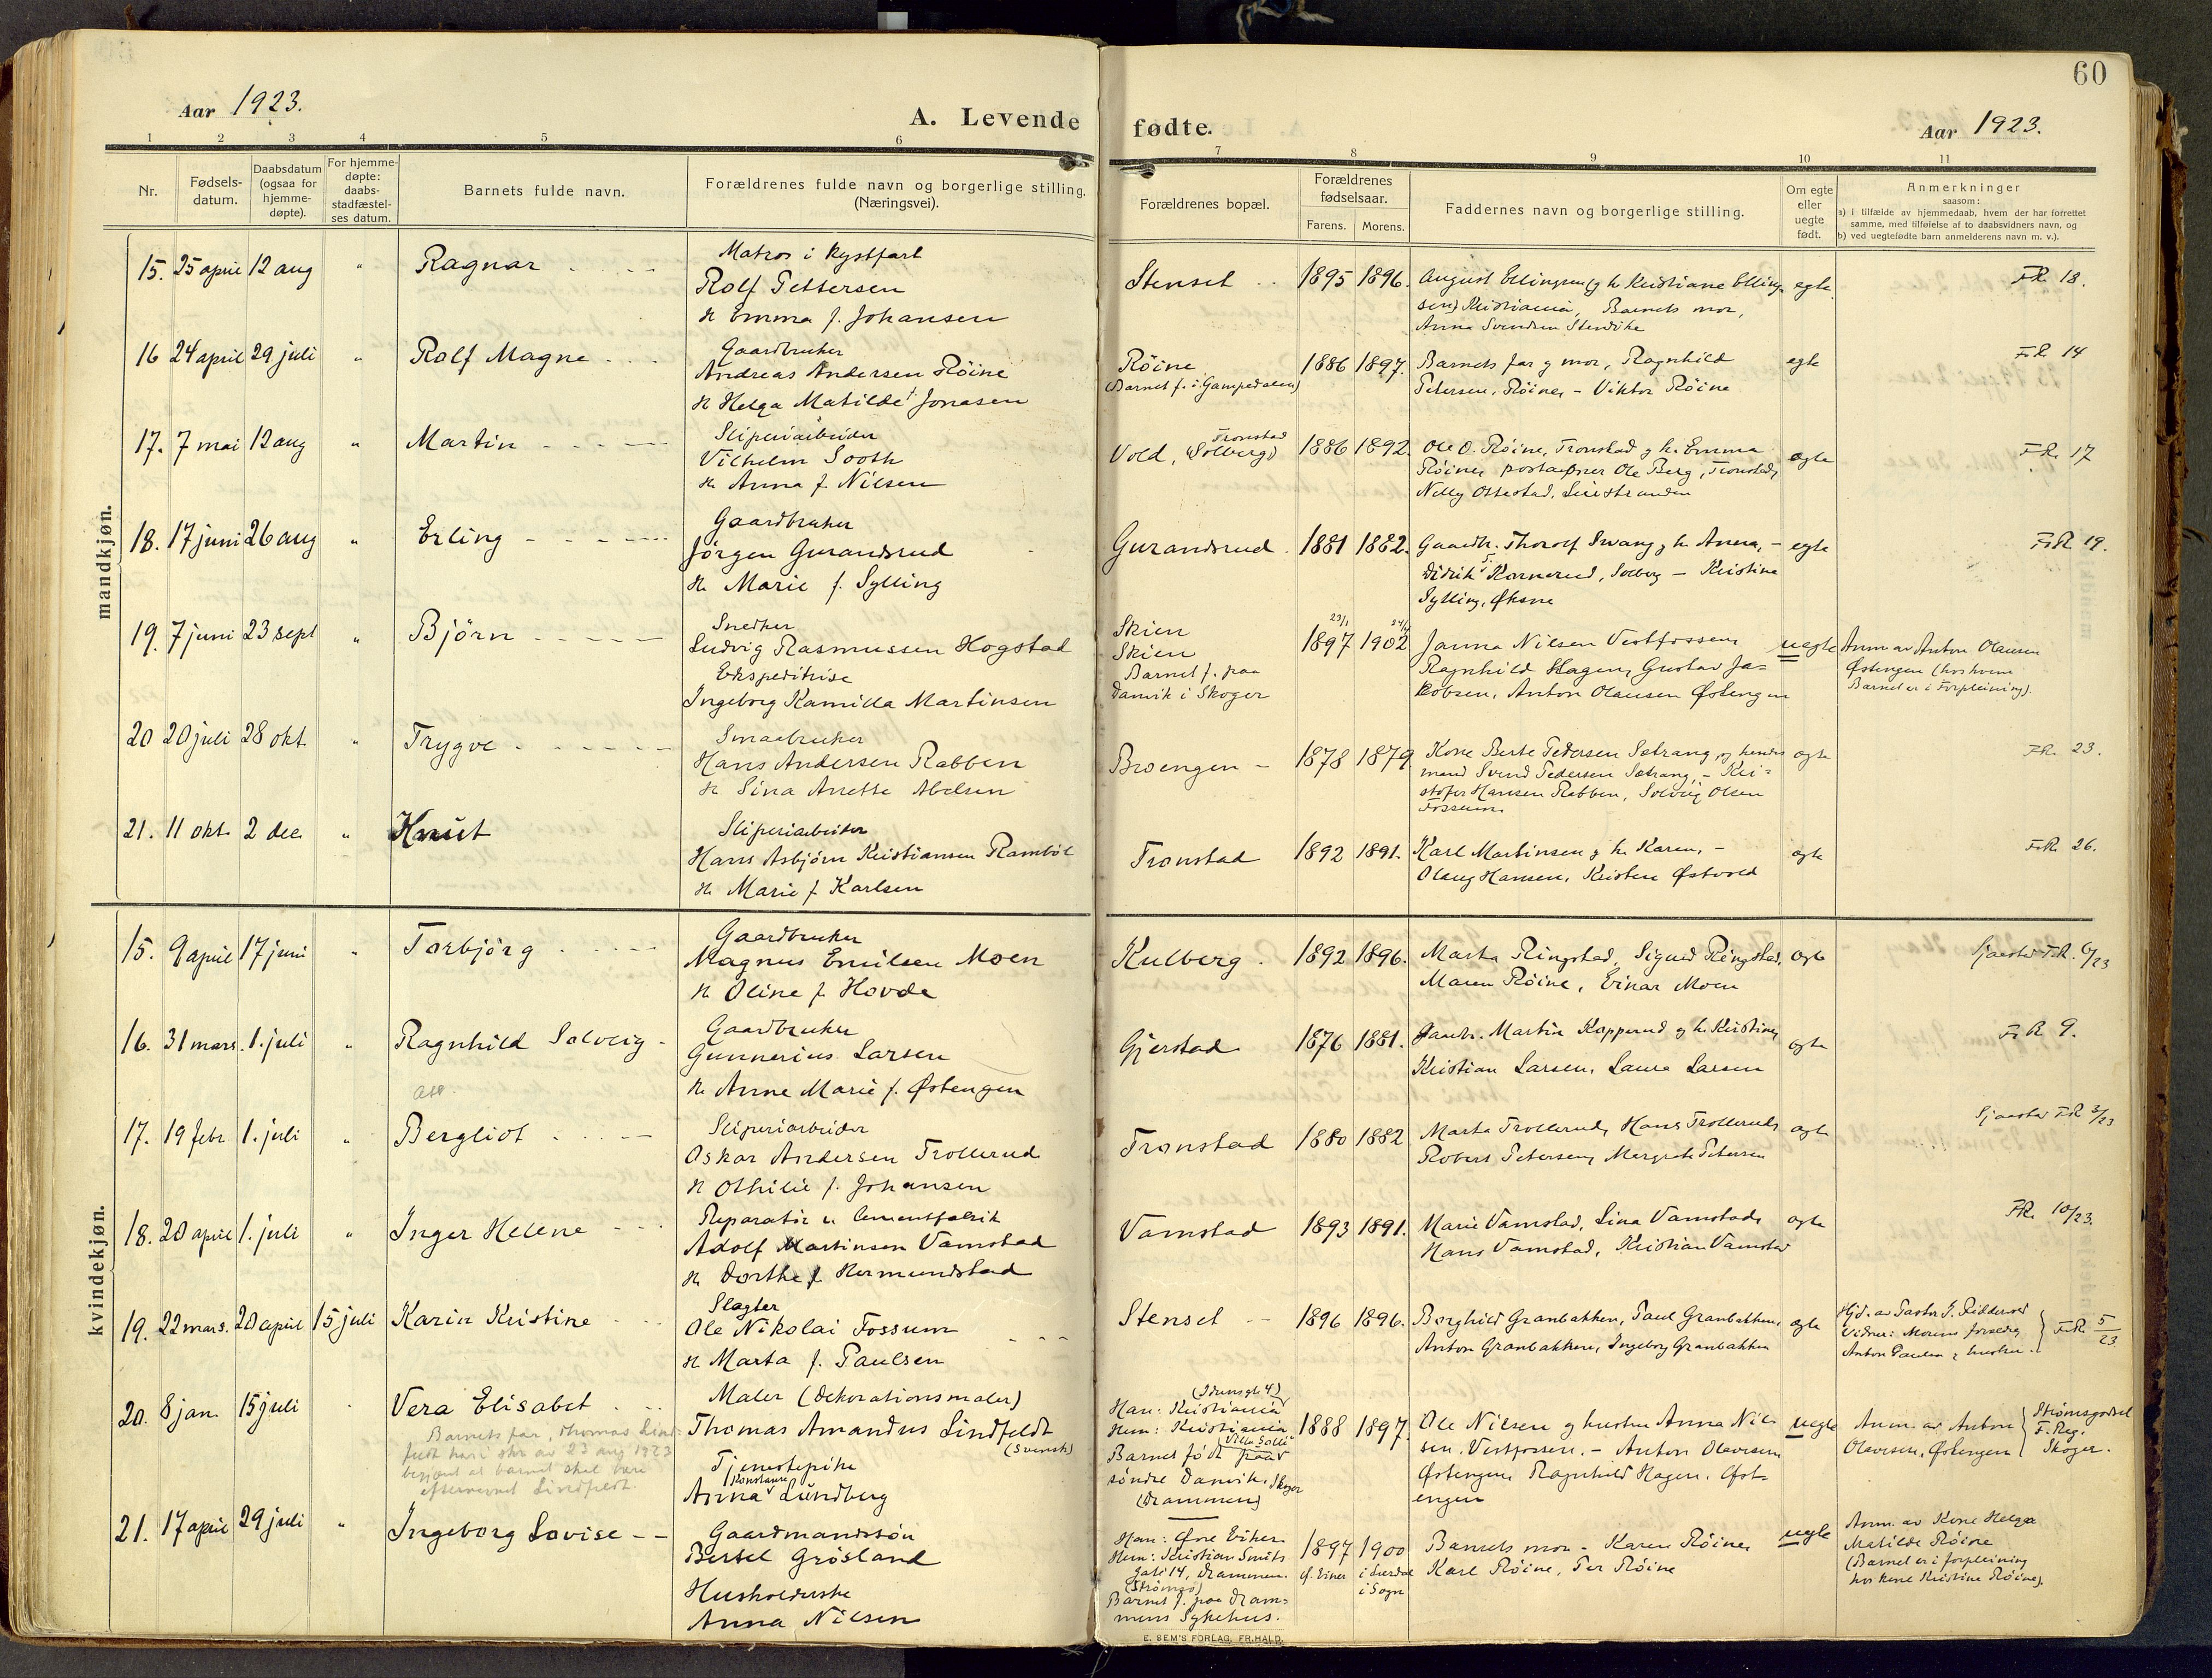 60
Aar 1923.
A. Levende fødte.
Aar 1923.
1 2 3 4 5 6 7 8 9 10 11
Nr.
Fødsels-
datum.
Daabsdatum
(ogsaa for
hjemme-
døpte).
For hjemme-
døpte:
daabs-
stadfæstel-
ses datum.
Barnets fulde navn.
Forældrenes fulde navn og borgerlige stilling.
(Næringsvei).
Forældrenes bopæl.
Forældrenes
fødselsaar.
Farens. Morens.
Faddernes navn og borgerlige stilling.
Om egte
eller
uegte
født.
Anmerkninger
saasom:
a) i tilfælde av hjemmedaab, hvem der har forrettet
samme, med tilføielse av to daabsvidners navn, og
b) ved uegtefødte barn anmelderens navn m. v.).
mandkjøn.
15. 25 april 12 aug " Ragnar
Matros i kystfart
Rolf Pettersen
H Emma f. Johansen
Stenset 1895 1896.
August Ellingsen og h. Kristiane Elling-
sen, Kristiania, Barnets mor,
Anna Svendsen Stensike
egte
FR. 18.
16 24 april 29 juli " Rolf Magne
Gaardbruker
Andreas Andersen Röine
H Helga Matilde f. Jonasen
Röine
(Barnet f. i Gampedalen)
1886 1897.
Barnets far og mor, Ragnhild
Petersen, Röine, - Viktor Röine
egte
FR. 14
17. 7 mai 12 aug " Martin
Sliperiarbeider
Vilhelm Sooth
H. Anna f. Nilsen
Vold, (Solberg) Tronstad
1886 1892.
Ole O. Röine, Tronstad og h. Emma
Röine, postaapner Ole Berg, Tronstad,
Nelly Ossestad, Lierstranden
egte
FR. 17
18. 17 juni 26 aug " Erling
Gaardbruker
Jörgen Gurandsrud
H. Marie f. Sylling
Gurandsrud 1881 1882.
Gaardbr. Thorolf Svang og h. Anna, -
Didrik S. Kornerud, Solberg - Kristine
Sylling, Øksne
egte
FR 19.
19. 7 juni 23 sept " Björn
Snedker
Ludvig Rasmussen Hogstad
Ekspeditrise
Ingeborg Kamilla Martinsen
Skien
Skien
Barnet f. paa
Danvik i Skoger
23/1 1897 1902
Janna Nilsen Vestfossen,
Ragnhild Hagen, Gustav Ja-
kobsen, Anton Olausen Østengen
uegte
Anm av Anton Olausen
Østengen (hos hvem
Barnet er i Forpleining).
20 20 juli 28 okt. " Trygve
Smaabruker
Hans Andersen Rabben
H. Sina Anette Abelsen
Broengen - 1878 1879
Kone Berte Pedersen Sætrang og hendes
mand Svend Pedersen Sætrang, - Kri-
stofer Hansen Rabben, Solveig Olsen
Fossum.
egte
FR. 23.
21. 11 okt. 2 dec. " Knut
Sliperiarbeider
Hans Asbjörn Kristiansen Ramböl
H. Marie f. Karlsen
Tronstad 1892 1891.
Karl Martinsen og h. Karen, -
Olaug Hansen, Kristen Østvold
egte
FR. 26.
kvindekjøn.
15. 9 april 17 juni " Torbjörg
Gaardbruker
Magnus Emilsen Moen
H. Oline f. Hovde
Kulberg. 1892 1896.
Marta Ringstad, Sigurd Ringstad,
Maren Röine, Einar Moen
egte
Sjaastad FR. 6/23
16. 31 mars. 1. juli " Ragnhild Solveig
Gaardbruker
Gunnerius Larsen
H. Anne Marie f. Østengen
Gjerstad 1876 1881.
Gaardbr. Martin Kopperud og h. Kristine,
Kristian Larsen, Laura Larsen
egte
FR 9.
17. 19 febr 1. juli " Bergliot
Sliperiarbeider
Oskar Andersen Trollerud
H Othilie f. Johansen
Tronstad 1880 1882
Marta Trollerud, Hans Trollerud,
Robert Petersen, Margrete Petersen
egte
Sjaastad FR 3/23
18. 20 april 1. juli " Inger Helene
Reparatör v. Cementfabrik
Adolf Martinsen Vamstad
H. Dorthe f. Hermundstad
Vamstad 1893 1891.
Marie Vamstad, Lina Vamstad,
Hans Vamstad, Kristian Vamstad
egte
FR. 10/23.
19. 22 mars. 20 april 15 juli Karin Kristine
Slagter
Ole Nikolai Fossum
H Marta f. Paulsen
Stenset 1896 1896.
Borghild Granbakken, Paul Granbakken,
Anton Granbakken, Ingeborg Granbakken
egte
Hjd. av Pastor J. Ridderved
Vidner: Morens foreldre
Anton Paulsen og hustru.
FR 5/23
20. 8 jan. 15 juli Vera Elisabet
Barnets far, Thomas Lind-
feldt har i skr av 23 aug 1923
begjært at barnet skal bære
efternavnet Lindfeldt.
Maler (Dekorationsmaler)
Thomas Amandus Lindfeldt
(Svensk)
Tjenestepike
Anna Konstanse Lundberg
(Idunsgt 4)
Han: Kristiania
Hun: Kristiania
Barnet född paa Villa Solli
söndre Danvik, Skoger
(Drammen)
1888 1897.
Ole Nilsen og hustru Anna Nil-
sen, Vestfossen. - Anton Olavesen
Østengen, Ragnhild Hagen, Øst-
engen
uegte
Anm. av Anton
Olavesen, Østengen
Strömsgodset
F. Reg.
Skoger.
21. 17 april 29 juli " Ingeborg Lovise
Gaardmandssön
Bersel Grösland
Husholderske
Anna Nilsen
Han: Øvre Eiker
Hun: Kristian Smits
gate 14, Drammen.
(Strömsö)
Barnet f. paa Dram-
mens Sykehus.
1897 1900
Barnets mor - Karen Röine,
Karl Röine, Per Röine
uegte
Anm. av Kone Helga
Matilde Röine
(Barnet er i forpleining
hos kone Kristine Röine).
E. SEM'S FORLAG, FR.HALD.